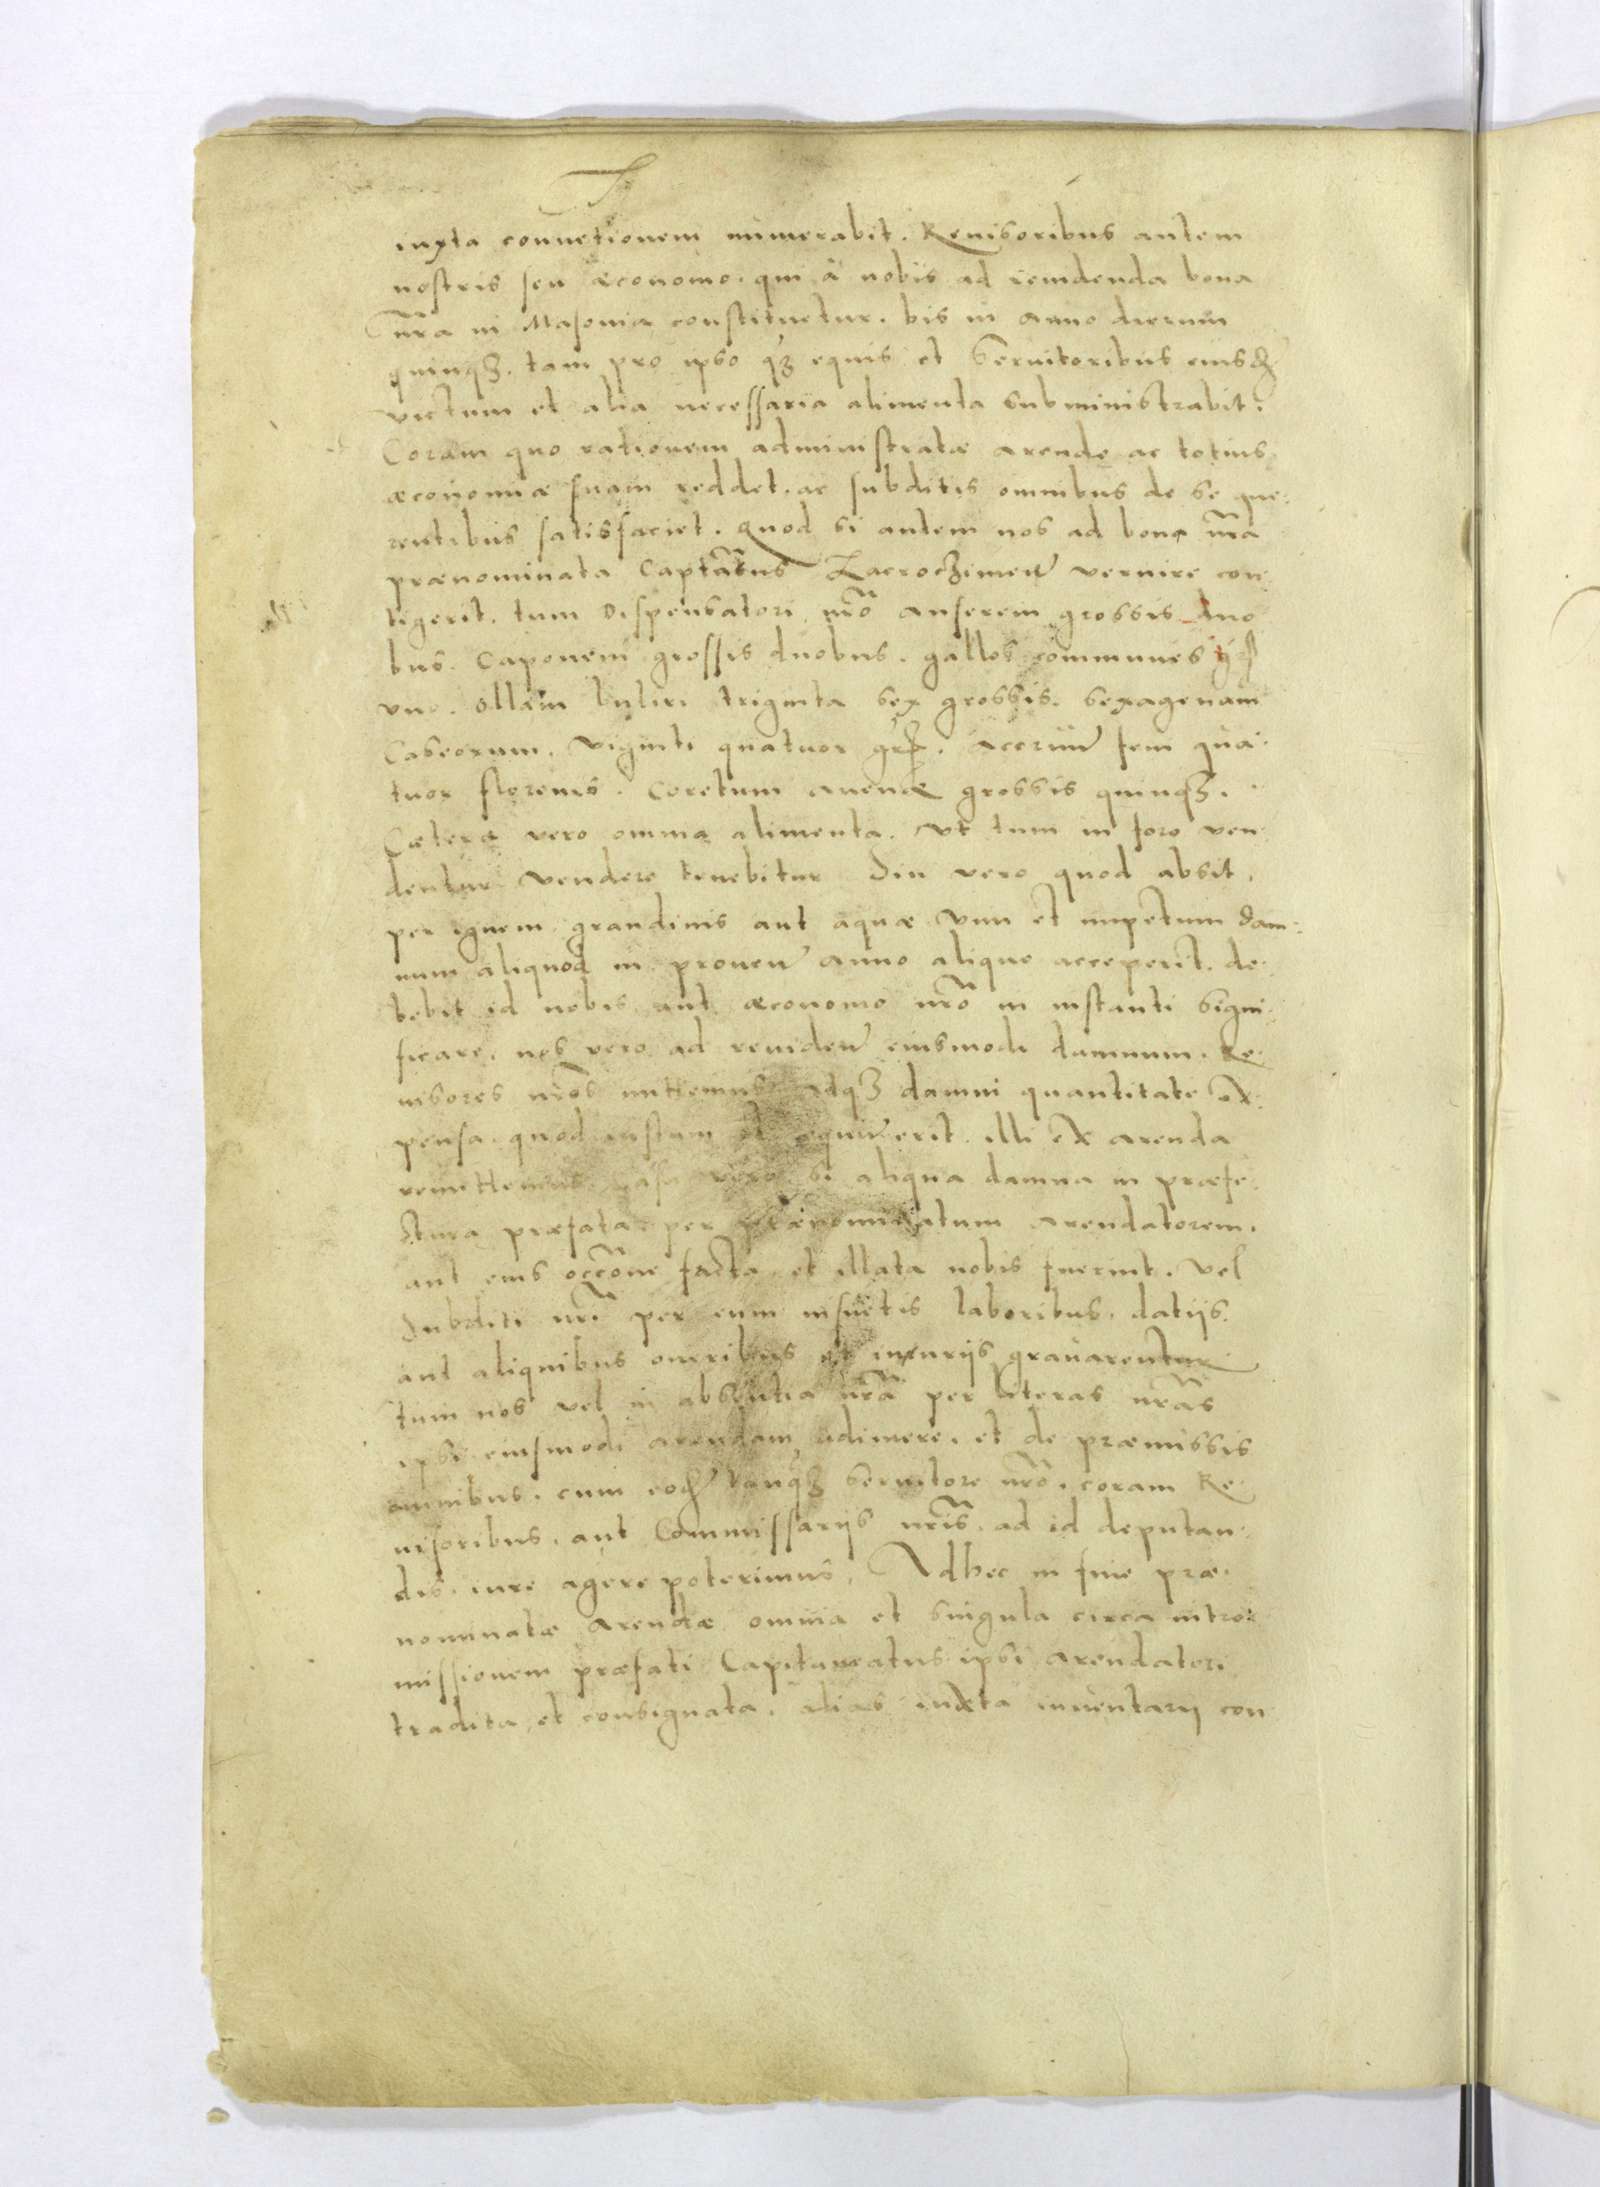 iuxta conuetionem numerabit. Reuisoribus autem
nostris seu œconomo. qui à nobis ad reuidenda bona
nra in Masouia constituetur. bis in anno dierum
quinqȝ. tam pro ipso qȝ equis et seruitoribus eiusdȝ
victum et alia necessaria alimenta subministrabit.
Coram quo rationem administratæ arendę ac totius
œconomiæ suam reddet. ac subditis omnibus de se que-
rentibus satisfaciet. Quod si autem nos ad bona nra
prænominata Captatus Zacrocȝimen venire con
tigerit. tum Dispensatori nro anserem grossis duo
bus. Caponem grossis duobus. gallos communes gr
vno. ollam butiri triginta sex grossis. sexagenam
Caseorum. viginti quatuor gr. aceruu feni qua-
tuor florenis. Coretum auenæ grossis quinqȝ.
Cætera vero omnia alimenta. vt tum in foro ven
dentur vendere tenebitur Sin vero quod absit.
per ignem grandinis aut aquæ vim et impetum dam-
num aliquod in prouen anno aliquo acceperit. de-
bebit id nobis aut œconomo nro in instanti signi-
ficare. nos vero ad reuiden eiusmodi damnum. Re-
uisores nros mittemus adqȝ damni quantitate ex-
pensa. quod iustum et equu erit. illi ex arenda
remittemus. vero si aliqua damna in præfe-
ctura præfata per prænominatum arendatorem.
aut eius occone facta et illata nobis fuerint. vel
Subditi nri per eum insuetis laboribus. datijs.
aut aliquibus oneribus et iniurijs grauarentur
tum nos vel in absentia nra per literas nras
ipsi eiusmodi arendam adimere. et de præmissis
omnibus. cum eod tanqȝ seruitore nro. coram Re-
uisoribus. aut Commissarijs nris. ad id deputan-
dis. iure agere poterimus. Adhec in fine præ-
nominatæ Arendæ omnia et singula circa intro-
missionem præfati Capitaneatus ipsi arendatori
tradita et consignata. alias iuxta inuentarij con